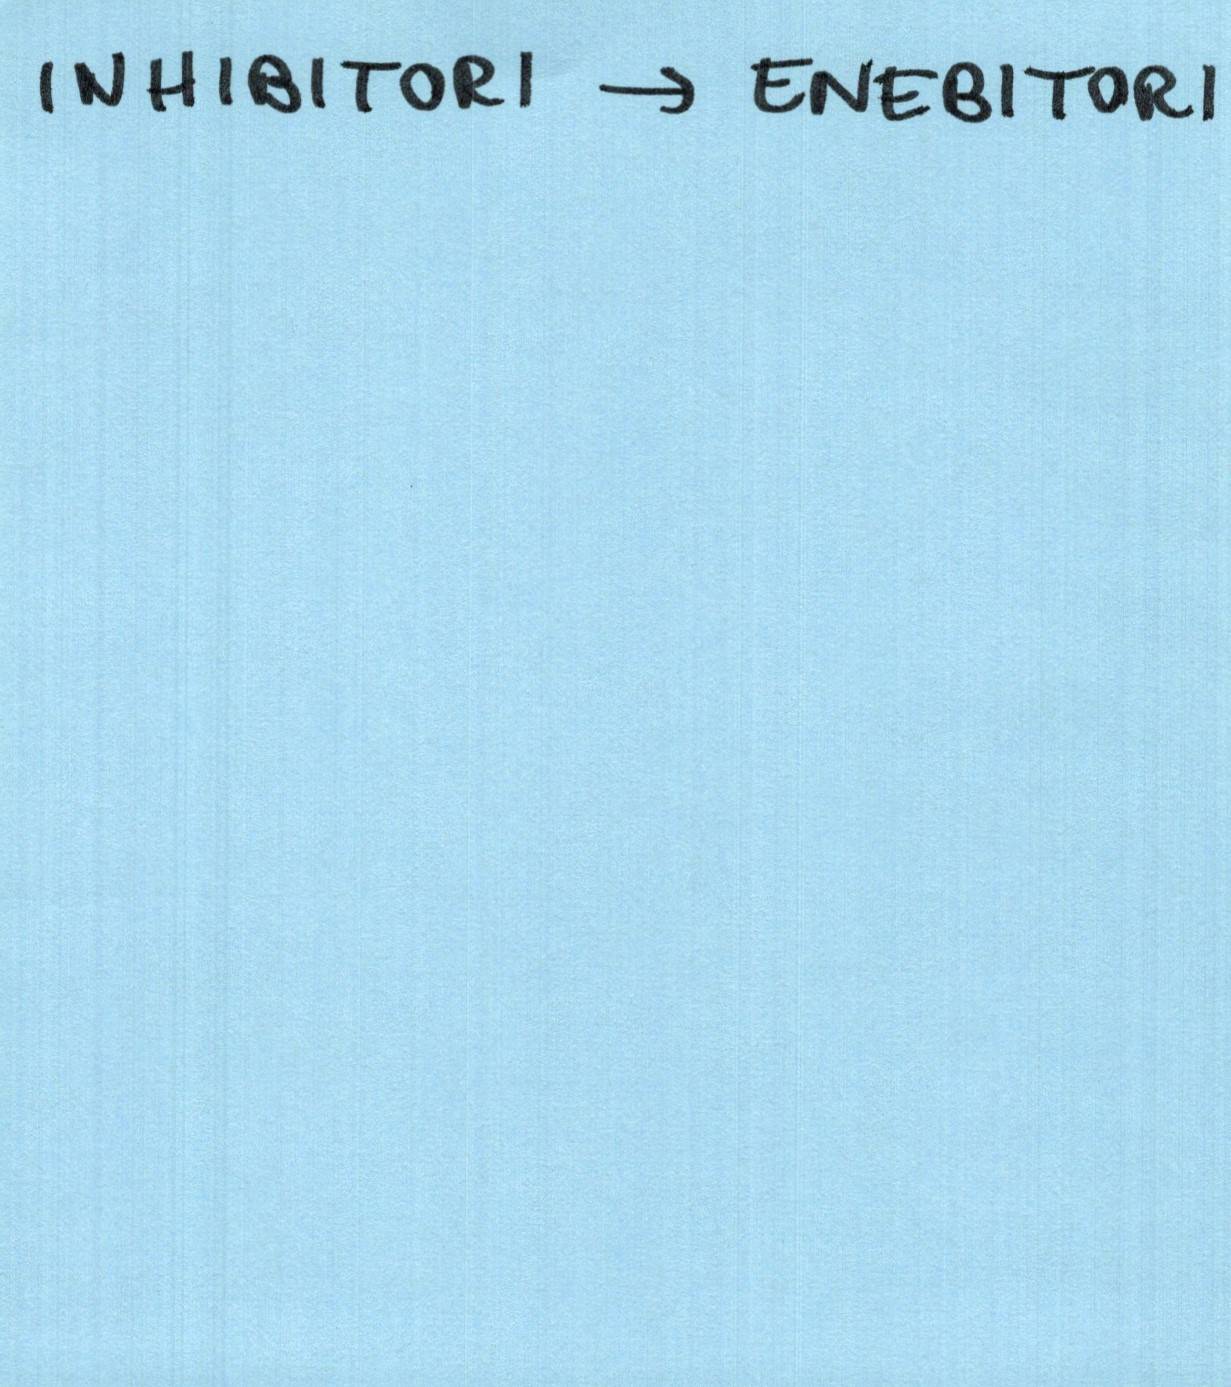 INHIBITORI → ENEBITORI